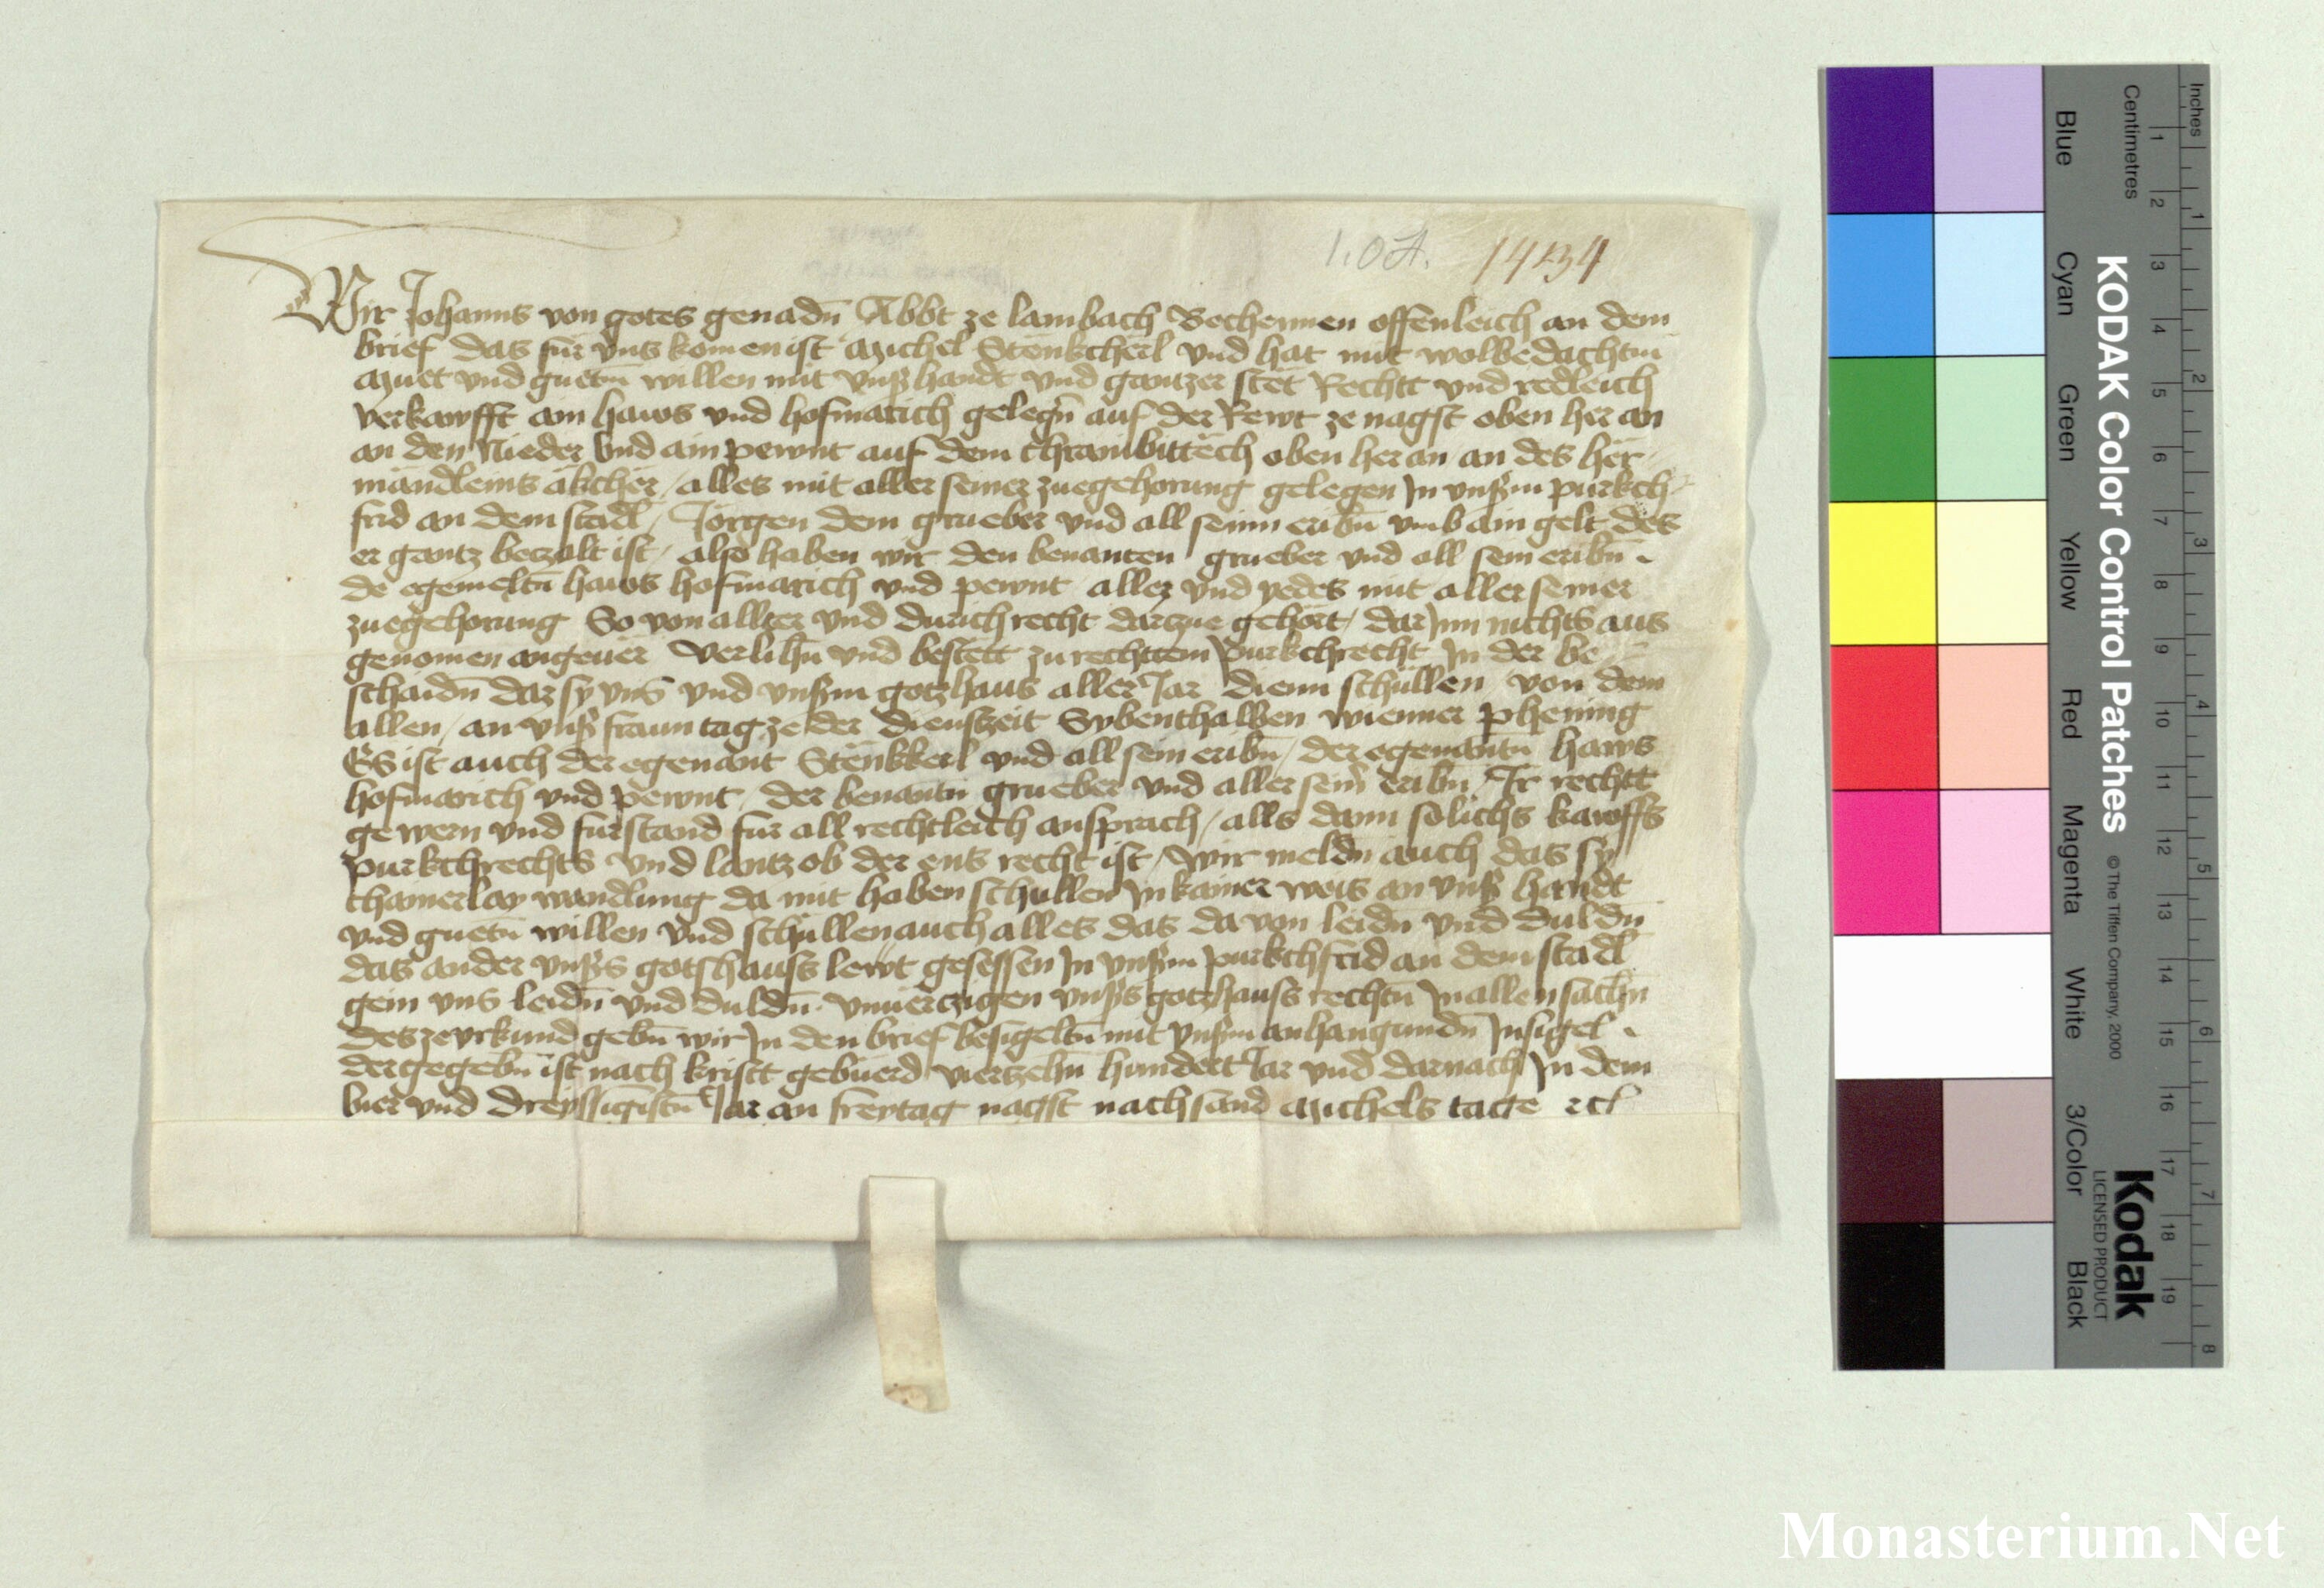 1.OA. 1434
Wir Johanns von gotes genadn̄ Abbt ze lambach Bechennen offenleich an dem
brief das für vns komen ist Michel Stënkcherl vnd hat mit wolbedachtm
Muet vnd guetn̄ willen mit vnsß handt vnd gantzer stët Rechtt vnd redleich
verkawfft ain haws vnd hofmarich gelegn̄ auf der Rewt ze nagst oben her an
an den Nieder vnd ain pewnt auf dem chrambittech oben her an an des hër
mändleins äkcher / alles mit aller seiner zuegehorung gelegen Jn vnsßm purkch
frid an dem stadl / Jörgen dem grueber vnd all seinn eribn̄ vmb ain gelt des
er gantz betzalt ist / also haben wir den benanten grueber vnd all sein eribn̄
de egemeltn̄ haws hofmarich vnd pewnt allez vnd yedes mit aller seiner
zuegehorung So von allter vnd durich recht dartzue gehört / dar Jnn nichts aus
genomen angeuer Verlihn̄ vnd bestëtt zu rechttem Purkchrecht Jn der be
schaidn̄ daz sy vns vnd vnsßm gotzhaus aller Jar dienn schüllen von dem
allen / an vnsß fraun tag ze der dienstzeit Sybenthalben wienner phening
Es ist auch der egenant Stenkkerl vnd all sein eribn̄ / der egenantn̄ haws
hofmarich vnd pewnt / der benantn̄ grueber vnd aller sein̄ eribn̄ Jr rechtt
gewern vnd furstand fur all rechtleich ansprach / alls dann solichs kawffs
purkchrechts vnd lantz ob der ens recht ist / Wir meldn̄ auch das sy
chainerlay wandlung da mit haben schullen Jn kainer weis an vnsß handt
vnd guetn̄ willen vnd schüllen auch alles das da von leidn̄ vnd duldn̄
das ander vnsßs gotshauss lewt gesessen Jn vnsßm purkchfrid an dem stadl
gein vns leidn̄ vnd duldn̄ vnuertzigen vnsßs gotzhauss rechtn̄ Jn allen sachn̄
des ze vrkund gebn̄ wir Jn den brief besigeltn̄ mit vnsßm anhangundn̄ Jnsigel
der gegebn̄ ist nach kristt gebuerd viertzehn̄ hundert Jar vnd darnach Jn dem
vier vnd dreyssigistn̄ Jar an freytag nagst nach sand Michels tage etc
KODAK Color Control Patches © The Tiffen Company, 2000
Kodak
LICENSED PRODUCT
Blue Cyan Green Yellow Red Magenta White 3/Color Black
Inches 1 2 3 4 5 6 7 8
Centimetres 1 2 3 4 5 6 7 8 9 10 11 12 13 14 15 16 17 18 19
Monasterium.Net